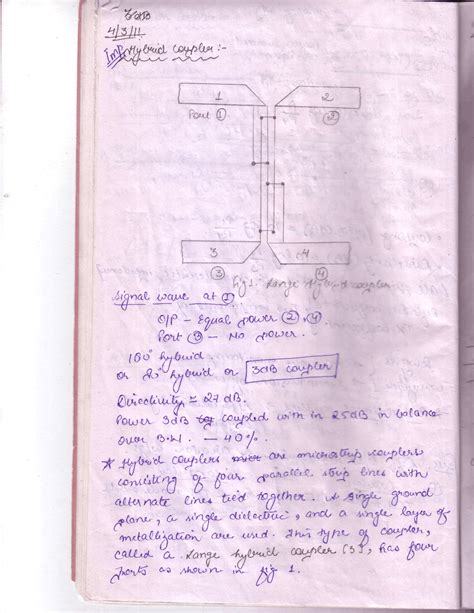 4/3/11
Imp Hybrid Coupler :-
1
2
Port ①
②
3
4
③
④
Fig 1. Lange Hybrid coupler
Signal wave at ①
O/P - Equal power ②, ④
Port ③ - No power.
or hybrid or 3dB coupler
Directivity ≈ 27 dB.
Power 3dB coupled with in 25dB in balance
over B.W. - 40%.
* Hybrid couplers are microstrip couplers
consisting of four parallel strip lines with
alternate lines tied together. A single ground
plane, a single dielectric, and a single layer of
metallization are used. This type of coupler,
called a Lange hybrid coupler (3), has four
ports as shown in fig 1.